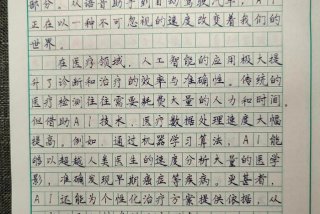 部分。从语音助手到自动驾驶汽车，AI
正在以一种不可忽视的速度改变着我们的
世界。
在医疗领域，人工智能的应用极大提
升了诊断和治疗的效率与准确性。传统的
医疗检测往往需要耗费大量的人力和时间
但借助AI技术，医疗数据处理速度大幅
提高。例如，通过机器学习算法，AI能
够以超越人类医生的速度分析大量的医学
影，准确发现早期癌症等疾病。更甚者，
AI还能为个性化治疗方案提供依据，从